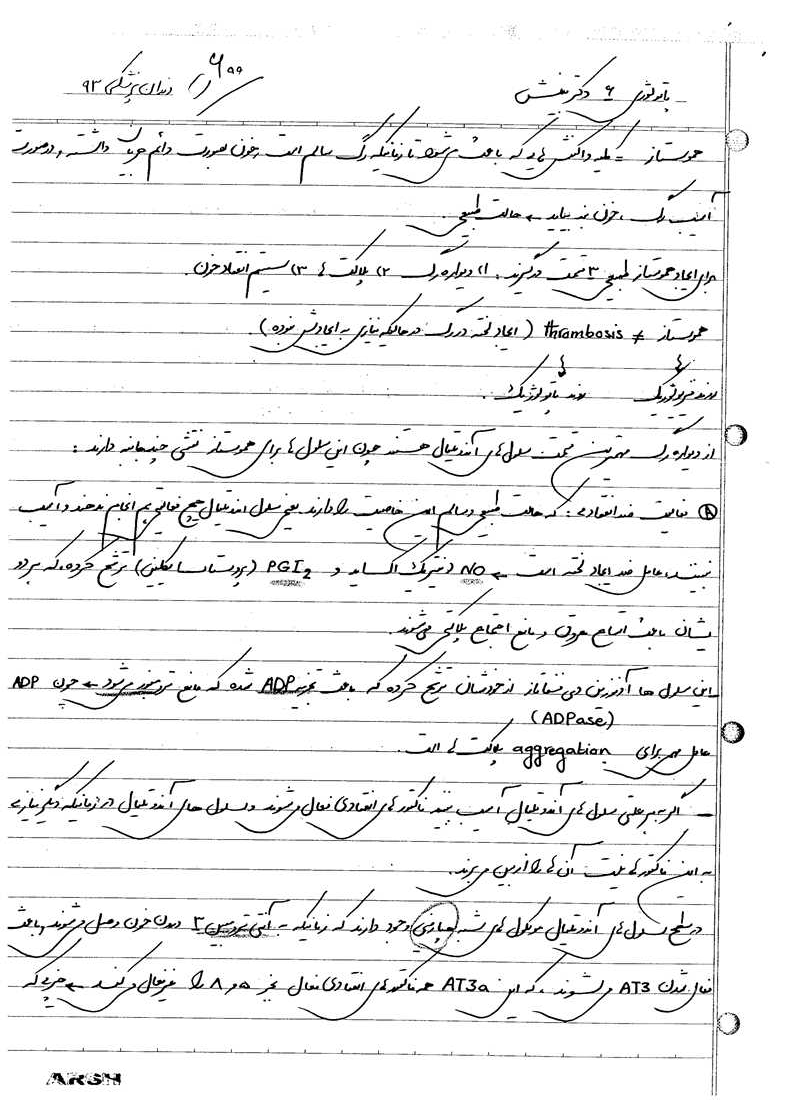 پاتولوژی 6 دکتر بینش
دندان پزشکی 93
هموستاز = کلیه واکنش هایی که باعث می شود تا زمانیکه رگ سالم است، خون بصورت دائم جریان داشته و در صورت
آسیب رگ، خون بند بیاید ← حالت طبیعی.
برای ایجاد هموستاز طبیعی 3 قسمت درگیرند: 1) دیواره رگ 2) پلاکت ها 3) سیستم انعقاد خون.
هموستاز ≠ thrombosis (ایجاد لخته در رگ در حالیکه نیازی به ایجادش نبوده).
روند فیزیولوژیک روند پاتولوژیک.
از دیواره رگ مهم ترین قسمت سلول های آندوتلیال هستند چون این سلول ها برای هموستاز نقشی چندجانبه دارند:
A فعالیت ضد انعقادی: که حالت طبیعی و سالم این خاصیت را دارند یعنی سلول اندوتلیال هیچ فعالیتی هم انجام ندهند و آسیب
نبیند، عامل ضد ایجاد لخته است ← NO (نیتریک اکساید) و PGI2 (پروستاسایکلین) ترشح کرده، که هر دو
یشان باعث اتساع عروق و مانع اجتماع پلاکتی می شوند.
این سلول ها آدنوزین دی فسفاتاز از خودشان ترشح کرده که باعث تجزیه ADP شده که مانع ترومبوز می شود ← چون ADP
(ADPase)
عامل مهم برای aggregation پلاکت ها است.
– اگر به هر علتی سلول های آندوتلیال آسیب ببیند فاکتورهای انعقادی فعال می شوند و سلول های آندوتلیال در زمانیکه دیگر نیازی
به این فاکتورها نیست آن ها را از بین می برند.
در سطح سلول های آندوتلیال مولکول های شبه هپارینی وجود دارند که زمانیکه به آنتی ترومبین 3 درون خون وصل می شوند، باعث
فعال شدن AT3 می شوند، که این AT3a هم فاکتورهای انعقادی فعال یعنی 5 و 8 را غیرفعال می کنند ← جزئی که
ARSH